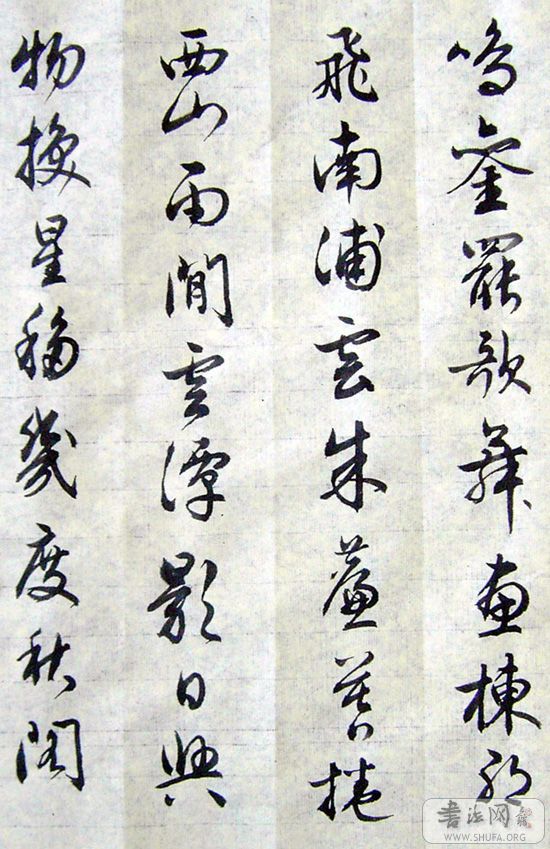 鳴鑾罷歌舞畫棟朝
飛南浦雲朱簾暮捲
西山雨閒雲潭影日
物換星移幾度秋閣
書法网
WWW.SHUFA.ORG